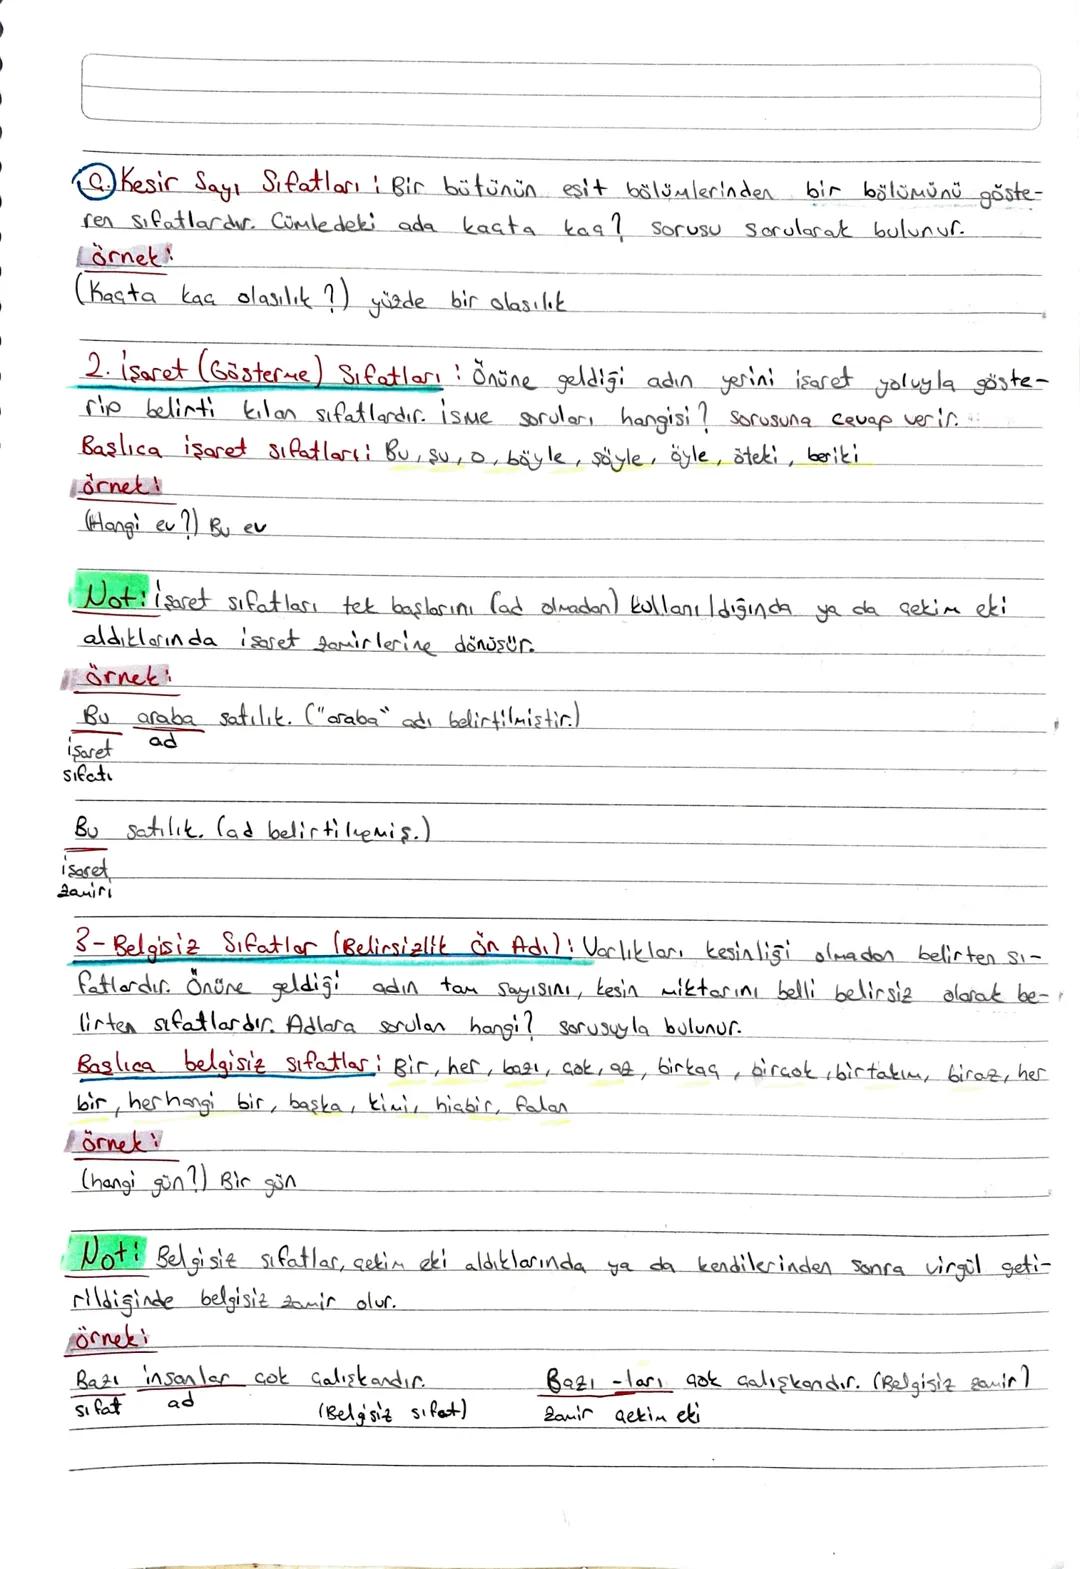 ç.) Kesir Sayı Sıfatları : Bir bütünün eşit bölümlerinden bir bölümünü göste-
ren sıfatlardır. Cümledeki ada kaçta kaç? sorusu sorularak bulunur.
örnek:
(Kaçta kaç olasılık?) yüzde bir olasılık
2. İşaret (Gösterme) Sıfatları : Önüne geldiği adın yerini işaret yoluyla göste-
rip belirti kılan sıfatlardır. İsme soruları hangisi? sorusuna cevap verir.
Başlıca işaret sıfatları: Bu, şu, o, böyle, şöyle, öyle, öteki, beriki
örnek:
(Hangi ev?) Bu ev
Not: İşaret sıfatları tek başlarını (ad olmadan) kullanıldığında ya da çekim eki
aldıklarında işaret zamirlerine dönüşür.
örnek:
Bu araba satılık. ("araba" adı belirtilmiştir.)
işaret ad
sıfatı
Bu satılık. (ad belirtilmemiş.)
işaret
zamiri
3- Belgisiz Sıfatlar (Belirsizlik Ön Adı): Varlıkları kesinliği olmadan belirten sı-
fatlardır. Önüne geldiği adın tam sayısını, kesin miktarını belli belirsiz olarak be-
lirten sıfatlardır. Adlara sorulan hangi? sorusuyla bulunur.
Başlıca belgisiz sıfatlar: Bir, her, bazı, çok, az, birkaç, birçok, birtakım, biraz, her
bir, herhangi bir, başka, kimi, hiçbir, falan
örnek:
(hangi gün?) Bir gün
Not: Belgisiz sıfatlar, çekim eki aldıklarında ya da kendilerinden sonra virgül geti-
rildiğinde belgisiz zamir olur.
örnek:
Bazı insanlar çok çalışkandır. Bazı -ları çok çalışkandır. (Belgisiz zamir)
sıfat ad (Belgisiz sıfat) zamir çekim eki